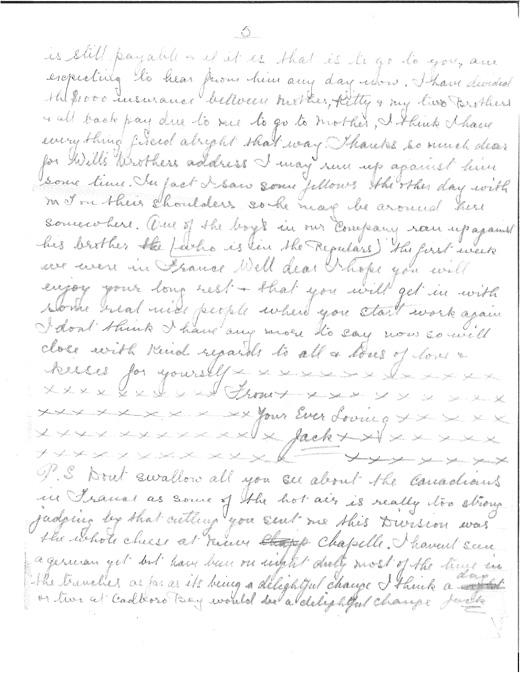 5
is still payable & if it is that is to go to you, am
expecting to hear from him any day now. I have devided
the $1000 insurance between Mother, Kitty & my two Brothers
& all back pay due to me to go to Mother, I think I have
everything fixed alright that way. Thanks so much dear
for Will's Brothers address I may run up against him
some time. In fact I saw some fellows the other day with
on their shoulders so he may be around here
somewhere. One of the boys in our Company ran up against
his brother the (who is in the Regulars) the first week
we were in France Well dear I hope you will
enjoy your long rest & that you will get in with
some real nice people when you start work again
I dont think I have any more to say now so will
close with kind regards to all & tons of love &
kisses for yourself x x x x x x x x x x x x
x x x x x x x x From x x x x x x x x x
x x x x x x x x x Your Ever Loving x x x x x
x x x x x x x x x x Jack x x x x x x x
x x x x x x x x x x x x x x x x x
P.S Dont swallow all you see about the Canadians
in France as some of the hot air is really too strong
judging by that cutting you sent me this Division was
the whole cheese at Neuve Chapp Chapelle. I havent seen
a german yet but have been on night duty most of the time in
the trenches as far as its being a delightful change I think a night day
or two at Cadboro Bay would be a delightful change Jack